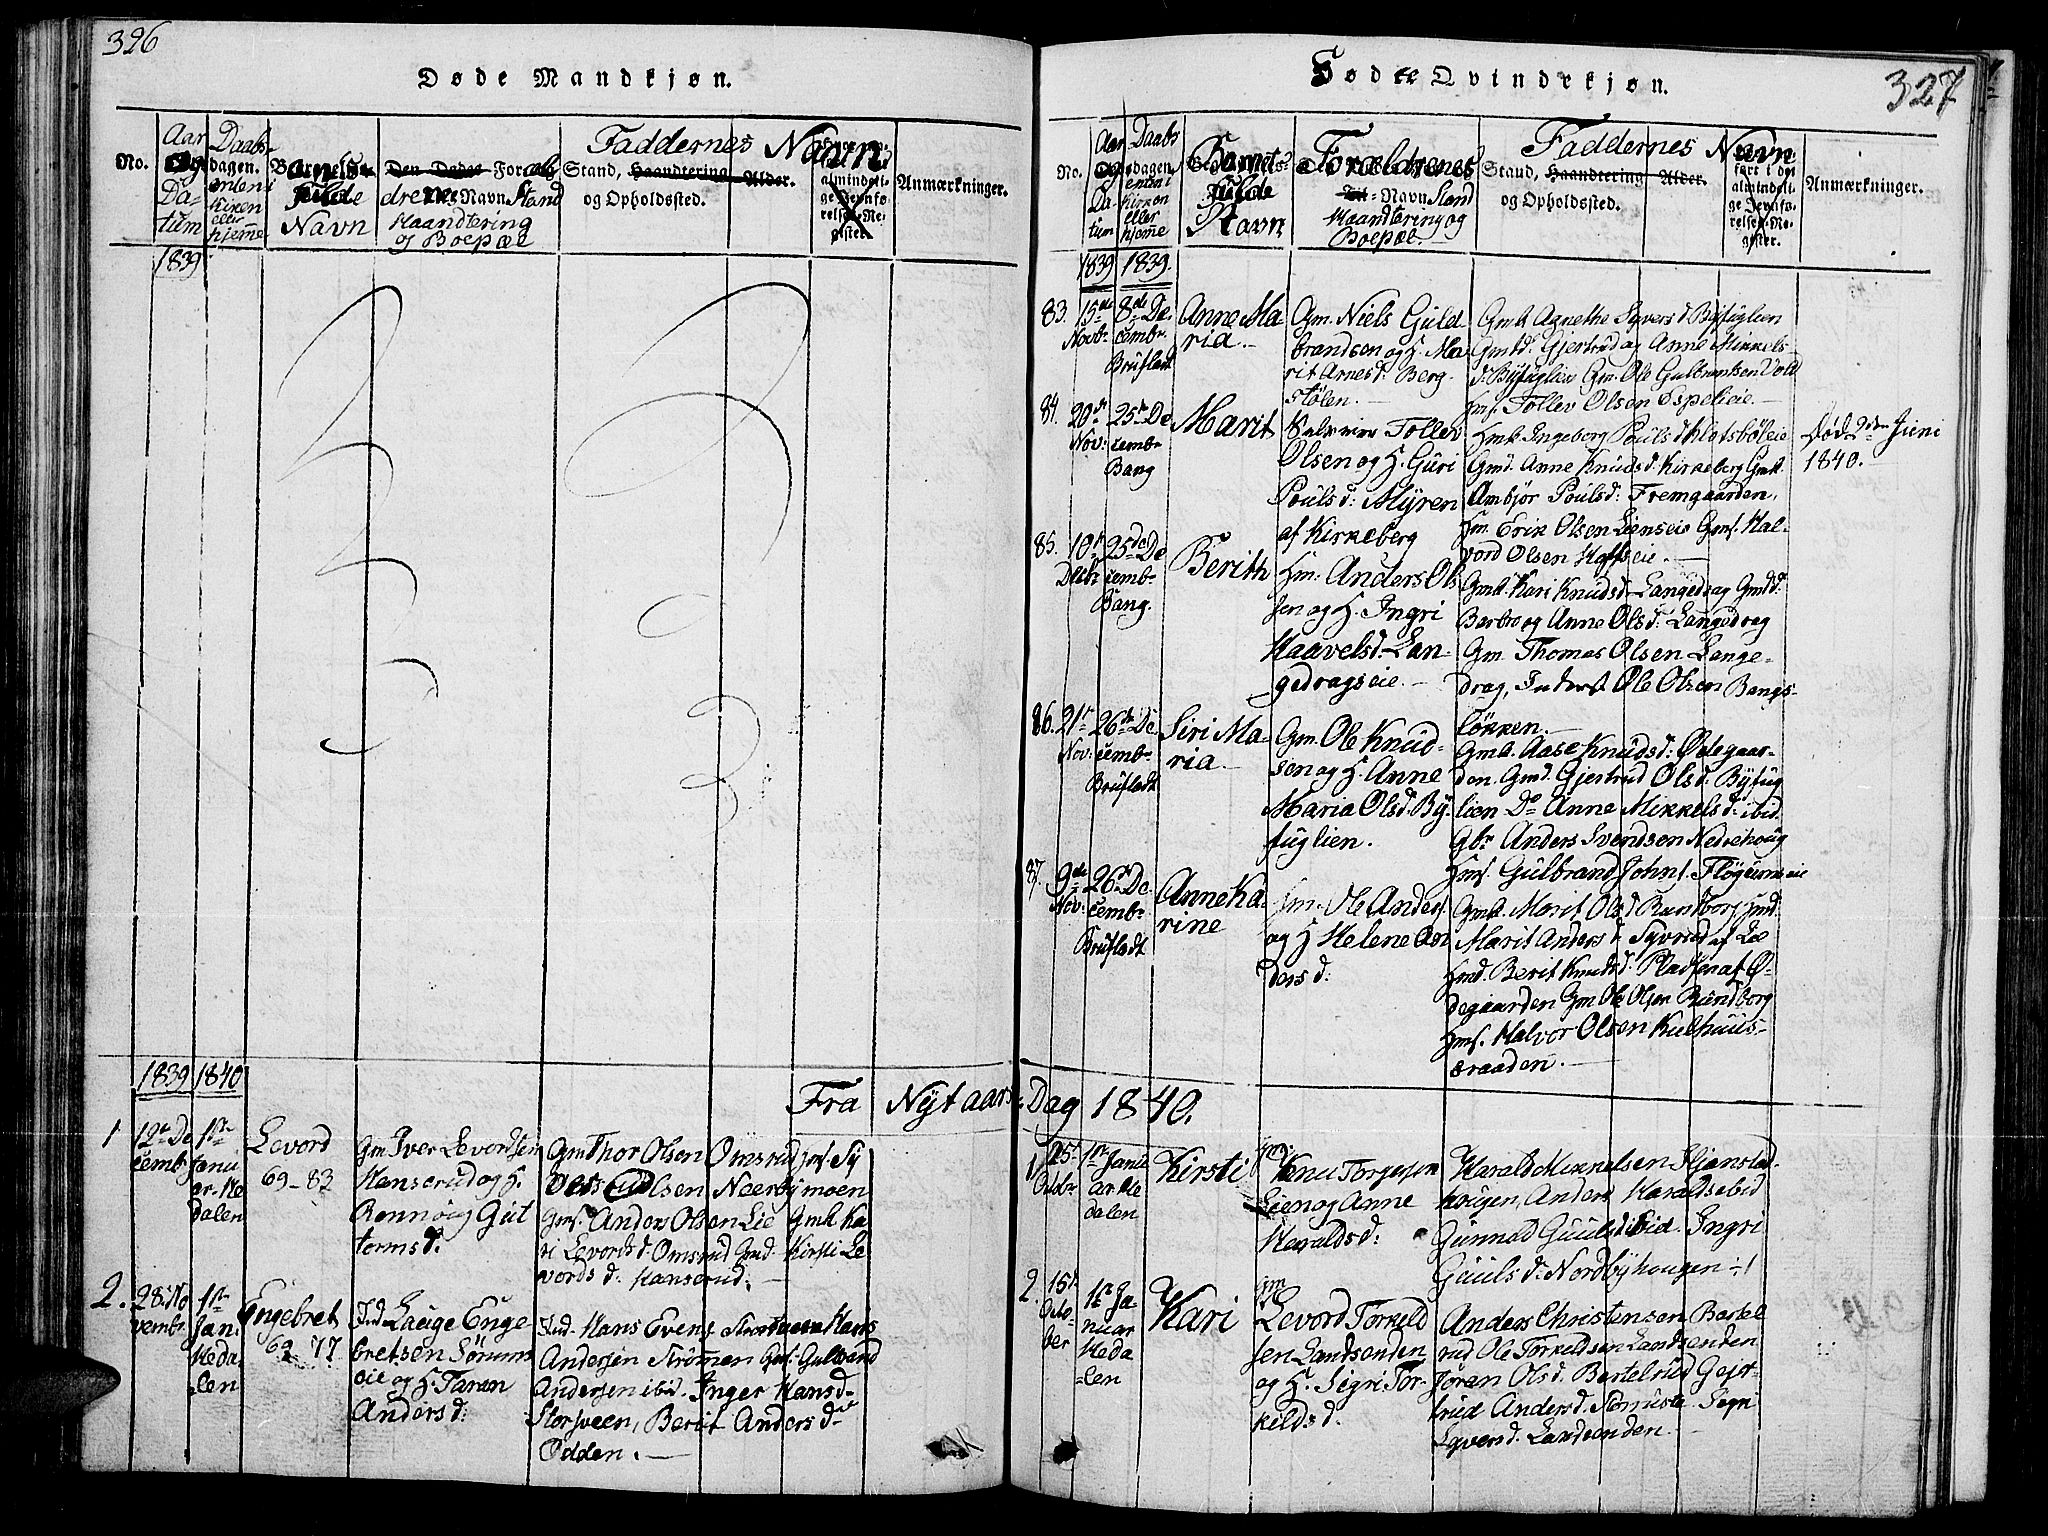 326
Døde Mandkjøn.
No.
Aar og Datum
Daabsdagen, enten i Kirken eller hjeme
Barnets fulde Navn
Den Dødes Forældrenes Navn Stand Haandtering og Boepæl
Faddernes Navn
Stand, Haandtering Alder.
og Opholdssted.
almindelige Jevnførelses-Register.
Anmærkninger.
1839
1839 1840
Fra Nytaars
1
12te December
1ste Januar Hedalen
Levord
69-83
Gm Iver Levordsen
Hanserud og H.
Rønnoug Guttormsd.
Gm Thor Olsen Omsrud
Olsen Neerbymoen
Gms. Anders Olsen Lie Gmk Kari Levordsd. Omsrud Gmd. Kirsti Levordsd. Hanserud.
2.
28. November
1ste Jan. Hedalen
Engebret
69 77
Ind. Lauge Engebretsen Sørumseie og H. Taran Andersd:
Ind. Hans Evens. Hans
Andersen Strømen Gulbrand
Andersen ibid. Inger Hansd.
Storsveen, Berit Andersd.
Odden.
327
Fødte Qvindekjøn.
No.
Aar og Datum
Daabsdagen enten i Kirken eller hjeme
Barnets fulde Navn
Forældrenes
Navn Stand
Haandtering og
Boepæl
Faddernes Navn
Stand, Haandtering Alder.
og Opholdssted.
ført i det almindelige Jevnførelses-Register.
Anmærkninger.
1839 1839.
83.
15de Novbr
8de December Bruflaat
Anne Maria.
Gm. Niels Guldbrandsen og H. Marit Arnesd: Bergstølen.
Gmk Agnethe Syversd Byfuglien
Gmtd. Gjertrud og Anne Mikkelsd. Byfuglien Gm. Ole Gulbrandsen Vold
Hmf. Tollev Olsen Espelieie
84.
20de Nov:
25de December Bang
Marit
Tollev
Olsen og H. Guri
Poulsd: Myren
af Kirkeberg
Hmk Ingeborg Poulsd Klotsbøleie
Gmd. Anne Knudsd. Kirkeberg Gmk
Ambjør Poulsd: Fremgaarden,
Hm. Erik Olsen Lienseie Gmf. Halvord Olsen Hoffseie.
Død 2den Juni
1840.
85.
10de Decbr
25de December Bang.
Berith
Hm: Anders Olsen og H. Ingri
Haavelsd. Langedragseie.
Gmk. Kari Knudsd. Langedrag Gmd.
Barbro og Anne Olsd: Langedrag
Gm. Thomas Olsen Langedrag, Inderst Ole Olsen Bangsløkken.
86.
21de Nov:
26de December Bruflaat
Siri Maria.
Gm. Ole Knudsen og H. Anne
Maria Olsd. Byfuglien.
Gmk. Aase Knudsd: Ødegaarden. Gmd. Gjertrud Olsd. Byfuglien Do Anne Mikkelsd: ibid.
Gbr Anders Svendsen Nedrehoug
Hmf. Gulbrand Johns. Fløgumseie
87.
9de Nov:
26de December Bruflaat
Anne Karine
Hm. Ole Anders.
og H Helene Andersd:
Gmk. Marit Olsd Rundborg Hmd.
Marit Andersd. Syverud af Lie
Hmd. Berit Knudsd: Pladsen af Ødegaarden Gm Ole Olsen Rundborg
Hmf. Halvor Olsen Kulhuusbraaden.
Dag 1840.
1.
25. Octbr
1ste Januar Hedalen
Kirsti
Gm. Knu Torgersen
Lien og Anne
Haraldsd:
Harald Mikkelsen Stjenstadhougen, Anders Haralds ibid
Gunnod Guulsd ibid. Ingri
Guulsd. Nordbyhougen
2.
15de October
1ste Januar Hedalen
Kari
Gm Levord Torkeldsen Landsenden
og H. Sigri Torkeldsd.
Anders Christensen Bertelrud Ole Torkeldsen Landsenden
Jøran Olsd. Bertelrud Gjertrud Andersd. Siguri
Syversd. Landsenden.